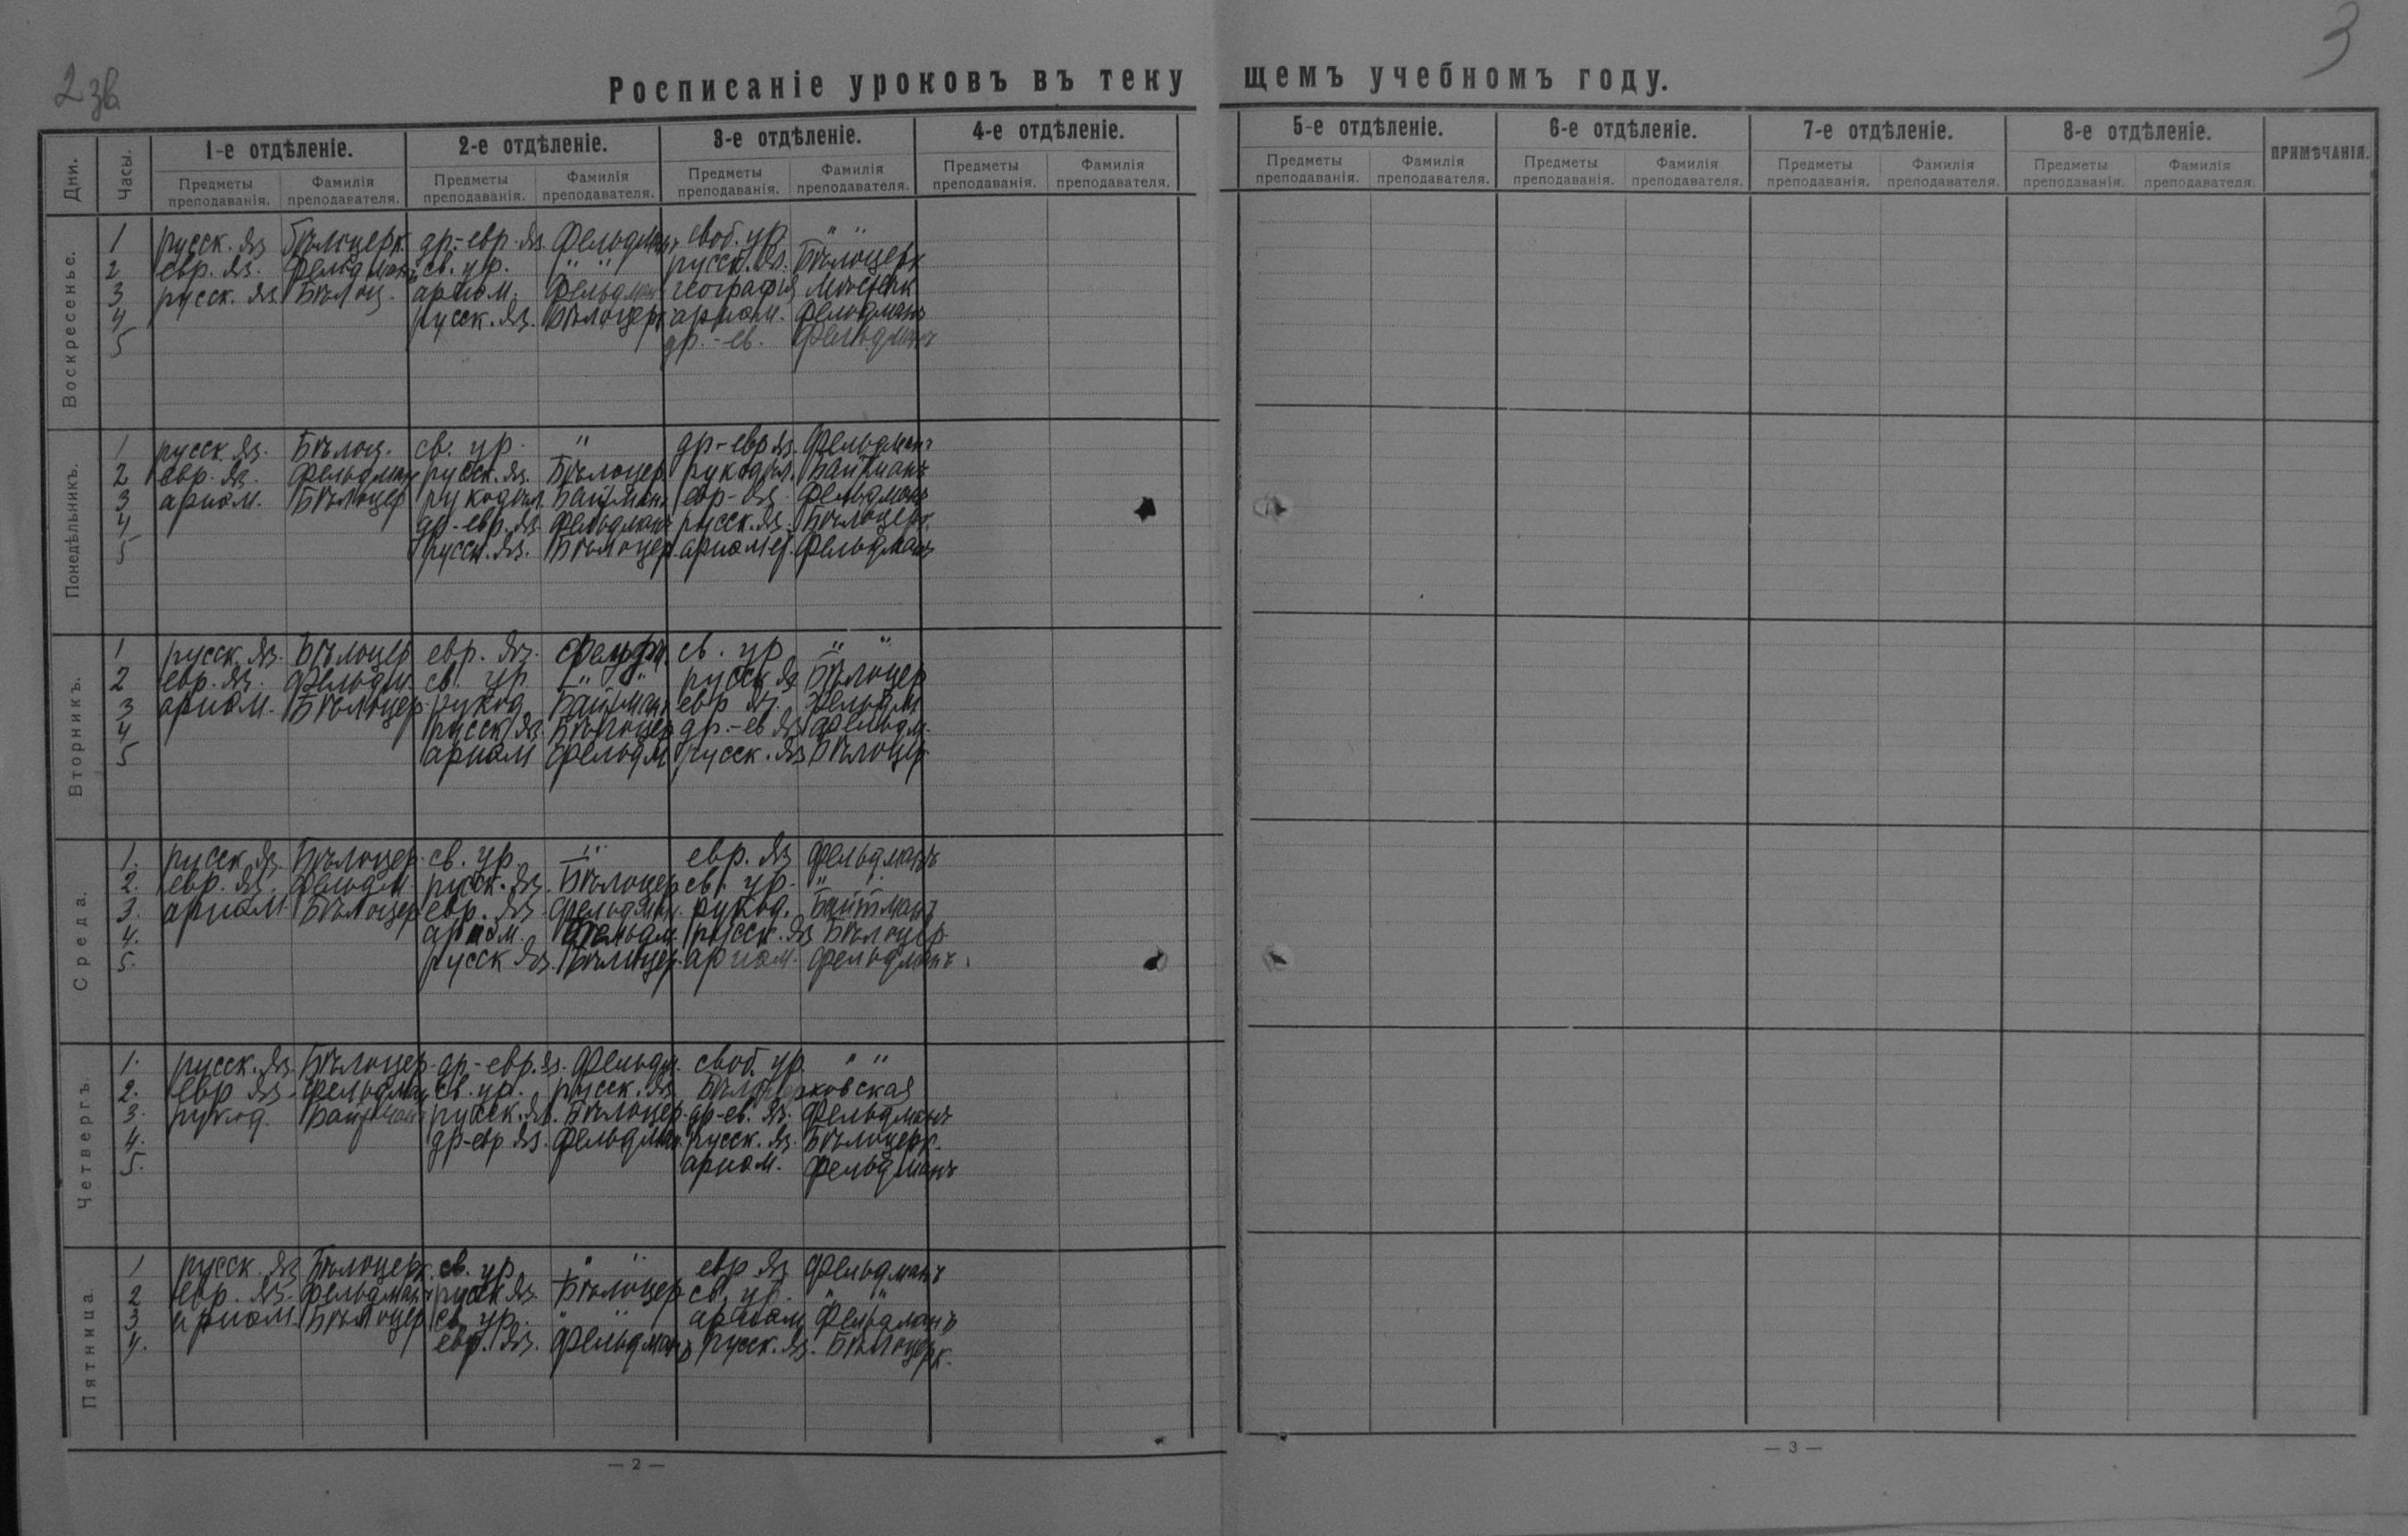 2 зв
3
Росписаніе уроковъ въ теку щемъ учебномъ году.
Дни. Часы. 1-е отдѣленіе. 2-е отдѣленіе. 3-е отдѣленіе. 4-е отдѣленіе. 5-е отдѣленіе. 6-е отдѣленіе. 7-е отдѣленіе. 8-е отдѣленіе. ПРИМѢЧАНІЯ.
Предметы преподаванія. Фамилія преподавателя. Предметы преподаванія. Фамилія преподавателя. Предметы преподаванія. Фамилія преподавателя. Предметы преподаванія. Фамилія преподавателя. Предметы преподаванія. Фамилія преподавателя. Предметы преподаванія. Фамилія преподавателя. Предметы преподаванія. Фамилія преподавателя. Предметы преподаванія. Фамилія преподавателя.
Воскресенье.
1 русск. яз Бѣлоцерк. др.-евр. яз. Фельдманъ своб. ур. " "
2 евр. яз. Фельдманъ св. ур. " " русск. яз. Бѣлоцерк
3 русск. яз Бѣлоц. ариѳм. Фельдман географія
4 русск. яз. Бѣлоцерк ариѳм. Фельдманъ
5 др.-ев. Фельдманъ
Понедѣльникъ.
1 русск. яз. Бѣлоц. св. ур. " др-евр яз. Фельдманъ
2 евр. яз. Фельдманъ русск. яз. Бѣлоцер. рукодѣл. Байтманъ
3 ариѳм. Бѣлоцер рукодѣл. Байтман евр-яз. Фельдманъ
4 др-евр. яз. Фельдманъ русск. яз. Бѣлоцерк.
5 русск. яз. Бѣлоцер. ариѳмет. Фельдманъ
Вторникъ.
1 русск. яз. Бѣлоцер евр. яз. Фельдм. св. ур " "
2 евр. яз. Фельдм. св. ур. " " русск яз Бѣлоцер
3 ариѳм. Бѣлоцер. рукод. Байтман евр яз. Фельдм
4 русск яз. Бѣлоцер др.-ев яз Фельдм.
5 ариѳм Фельдм русск. яз Бѣлоцер
Среда.
1. русск. яз. Бѣлоцер. св. ур. " евр. яз Фельдманъ
2. евр. яз. Фельдм русск. яз. Бѣлоцер св. ур. "
3. ариѳм. Бѣлоцер. евр. яз. Фельдман. рукод. Байтманъ
4. ариѳм. Фельдм. русск. яз Бѣлоцер
5. русск яз. Бѣлоцер. ариѳм. Фельдманъ.
Четвергъ.
1. русск. яз. Бѣлоцер. др-евр. яз. Фельдм. своб. ур. " "
2. евр яз Фельдман св. ур. русск. яз Бѣлоцерковская
3. рукод. Байтман русск. яз. Бѣлоцер. др-ев. яз. Фельдманъ
4. др-евр яз. Фельдман. русск. яз. Бѣлоцерк.
5. ариѳм. Фельдманъ
Пятница
1 русск. яз Бѣлоцерк. св. ур " " евр яз Фельдманъ
2 евр. яз. Фельдманъ русск яз. Бѣлоцер св. ур. " "
3 ариѳм. Бѣлоцер св. ур. " " ариѳм Фельдманъ
4. евр. яз. Фельдманъ русск. яз. Бѣлоцерк.
— 2 —
— 3 —